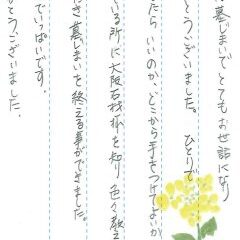 お墓じまいでとてもお世話になり
とうございました。 ひとりで
たらいいのか、どこから手をつけてよいか
いる所に大阪石材様を知り色々教え
だき墓じまいを終える事ができました。
でいっぱいです。
とうございました。